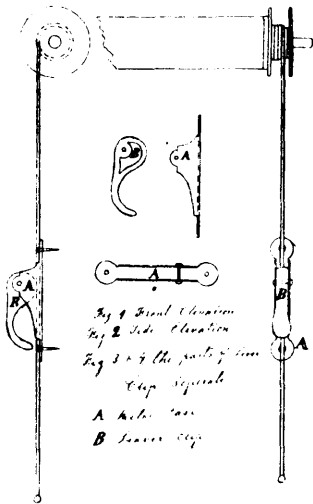 B
A
A
A
B
B
A
Fig 1 Front Elevation
Fig 2 Side Elevation
Fig 3 & 4 the parts of
Clip Seperate
A
B Clip